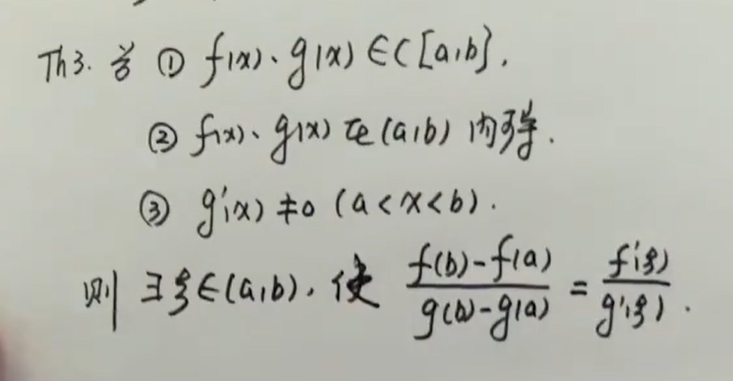 Th3. 若 ① f(x)、g(x)∈C[a,b].
② f(x)、g(x) 在(a,b) 内可导.
③ g'(x)≠0 (a<x<b).
则 ∃ξ∈(a,b), 使 \frac{f(b)-f(a)}{g(b)-g(a)} = \frac{f'(ξ)}{g'(ξ)}.